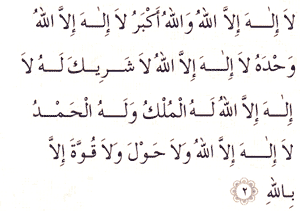 لاَ إِلٰهَ إِلاَّ اللهُ وَاللهُ أَكْبَرُ لاَ إِلٰهَ إِلاَّ اللهُ
وَحْدَهُ لاَ إِلٰهَ إِلاَّ اللهُ لاَ شَرِيكَ لَهُ لاَ
إِلٰهَ إِلاَّ اللهُ لَهُ الْمُلْكُ وَلَهُ الْحَمْدُ
لاَ إِلٰهَ إِلاَّ اللهُ وَلاَ حَوْلَ وَلاَ قُوَّةَ إِلاَّ
بِاللهِ ٢